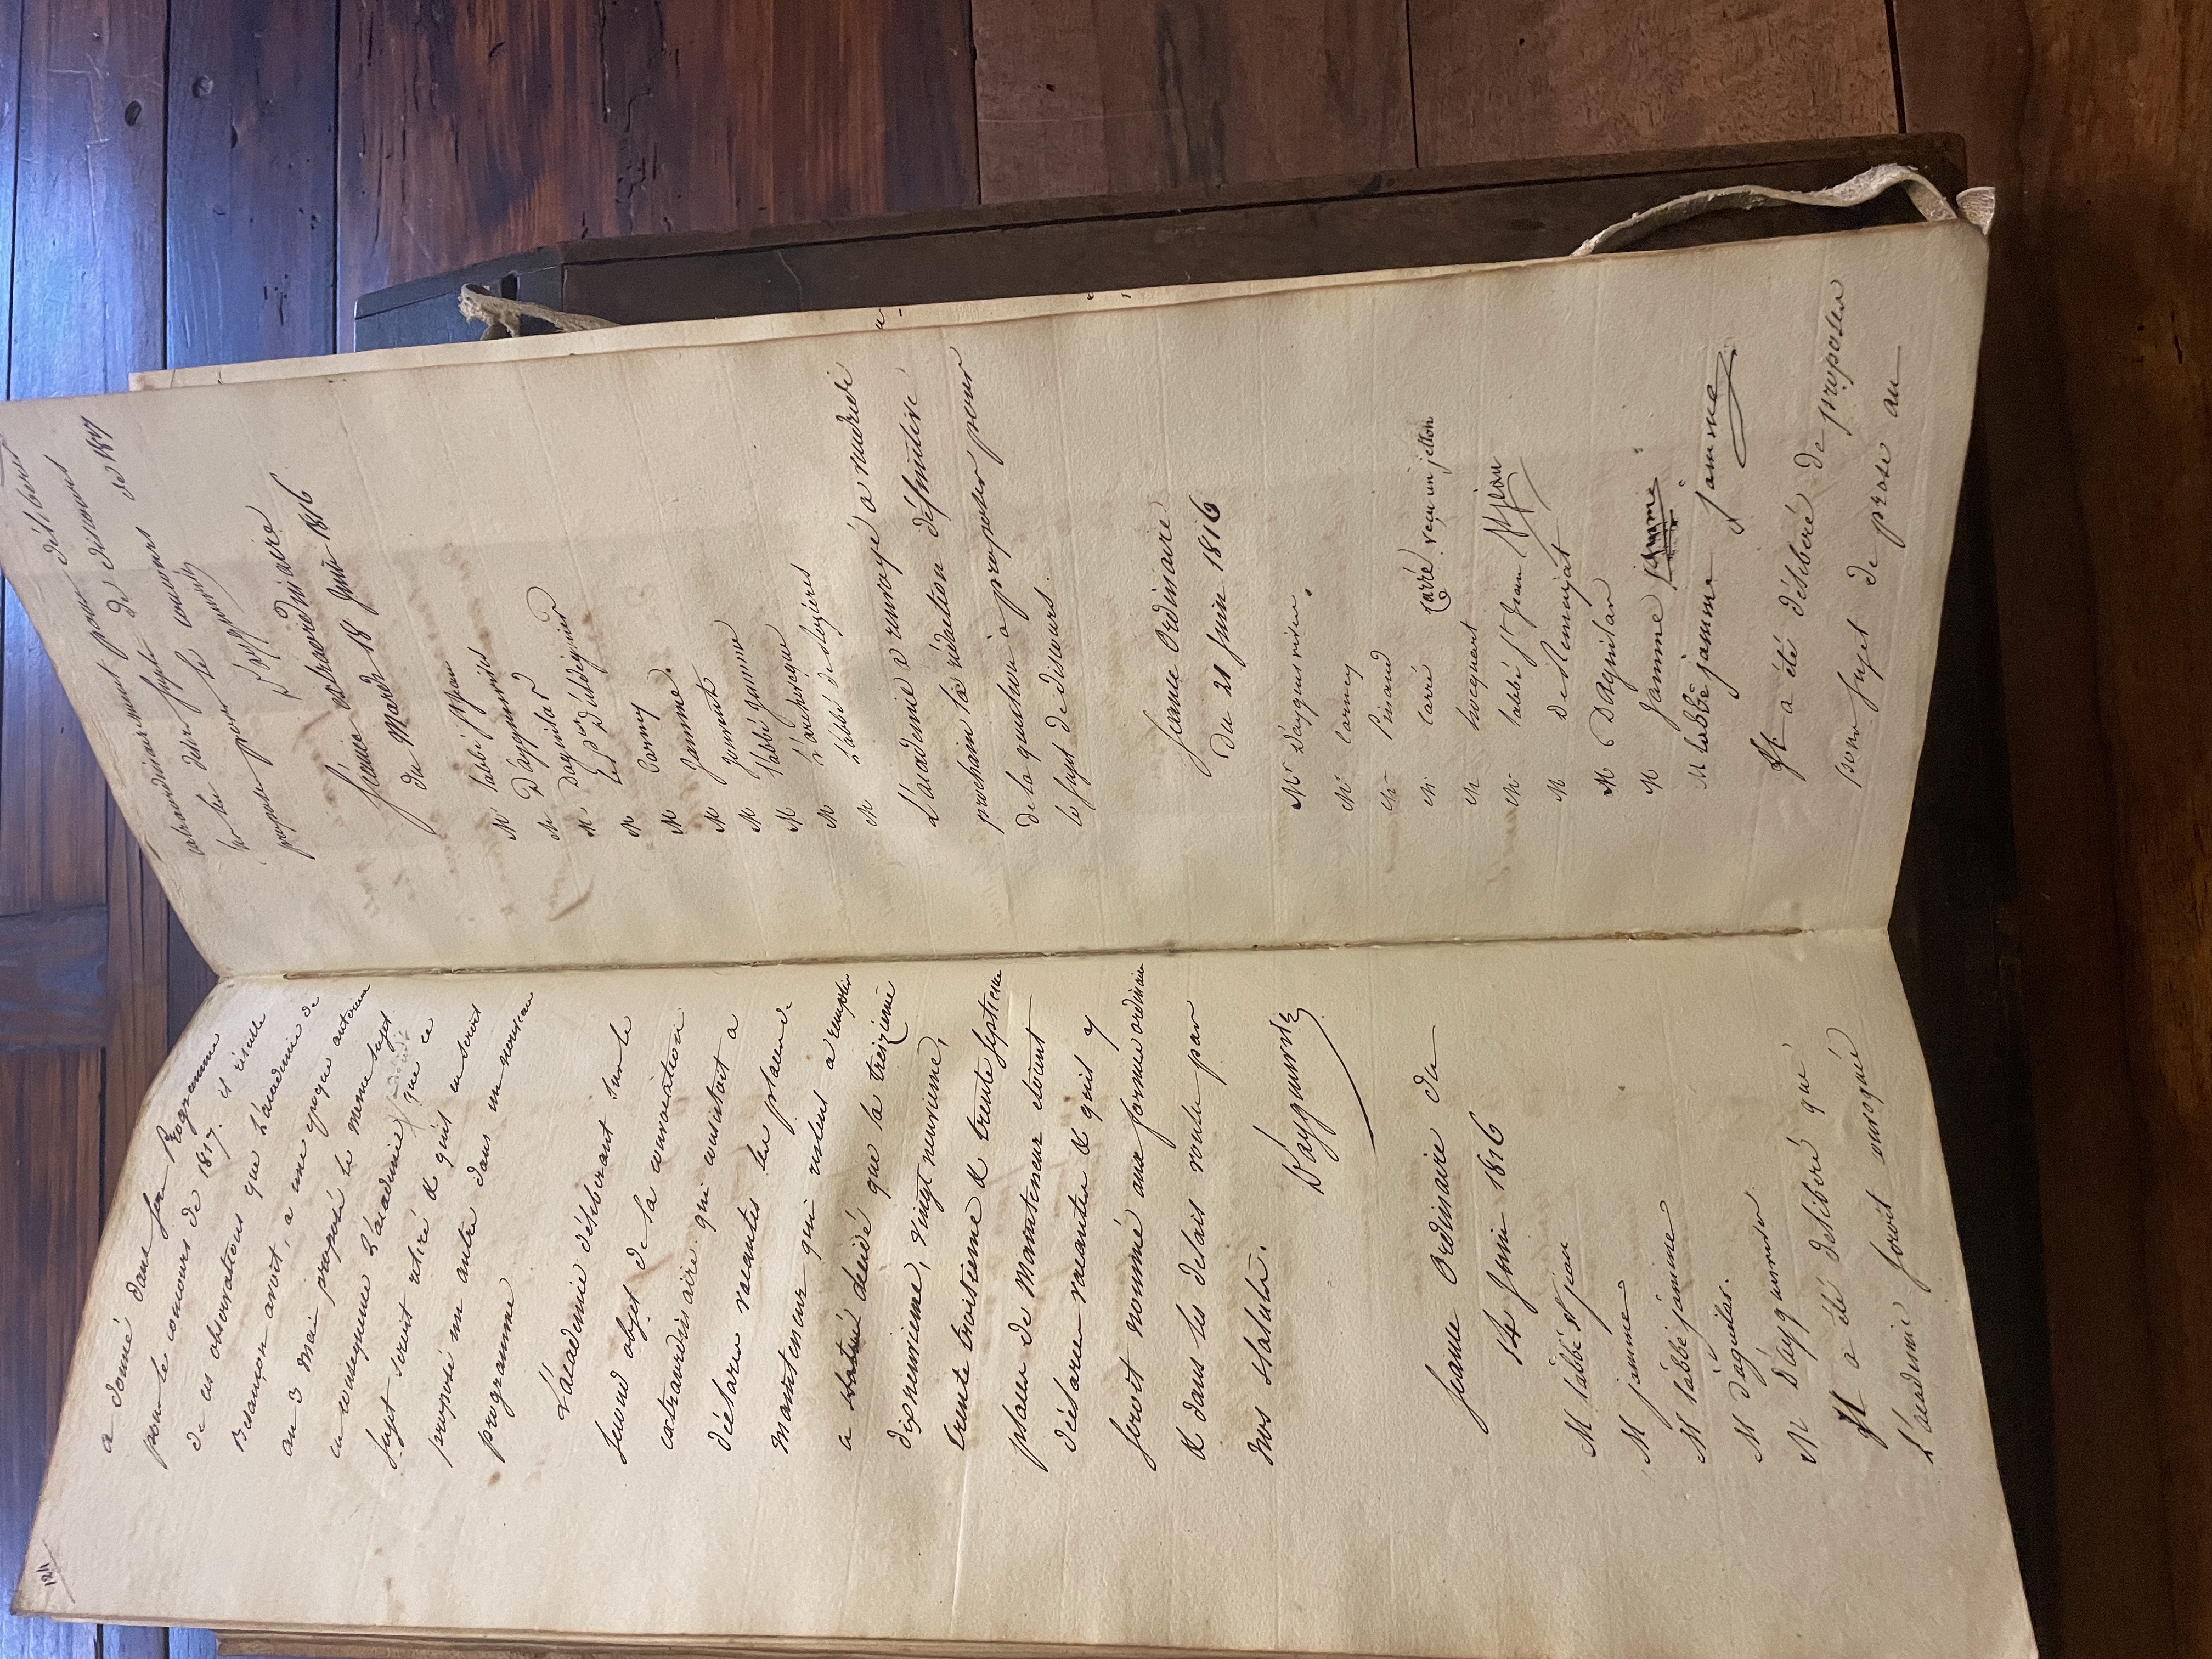 124
a donné dans son Programme
pour le concours de 1817. il résulte
de ces observations que L'académie de
Besançon avoit, a une epoque anterieure
au 3 Mai proposé le meme sujet.
en consequence L'académie que ce
sujet seroit retiré & qu'il en seroit
proposé un autre dans un nouveau
programme
L'académie déliberant sur le
second objet de la convocation
extraordinaire qui consistoit a
déclarer vacantes les places de
Mainteneur qui restent a remplir
a statué décidé que la treizieme
dixneuvieme, vingt neuvieme,
trente troisieme & trente septieme
places de Mainteneur etoient
déclarées vacantes & qu'il y
seroit nommé aux formes ordinaires
& dans les delais voulu par
nos statuts.
D'aygusvives
Seance Ordinaire du
14 Juin 1816
M l'abbé St jean
M jamme
M l'abbé jamme
M d'aguilar.
M D'aygusvives
Il a été deliberé que
L'académie seroit convoquée
extraordinairement pour déliberer
sur les deux sujets de discours
proposés pour le concours de 1817
D'aygusvives
Séance extraordinaire
du Mardi 18 Juin 1816
M l'abbé St Jean
M D'aygusvives
M Daguilar
M Le Pdt D'aldéguier
M Carney
M Jamme.
M Jouvent
M l'abbé Jamme
M L'archevêque
M L'abbé desLozieres
L'academie a renvoyé a vendredi
prochain la rédaction définitive
de la question à proposer pour
le sujet de discours.
Seance Ordinaire
du 21 Juin 1816
Mr D'aygusvives.
Mr Carney
Mr Pinaud
Mr Carré Carré reçu un jetton
Mr hocquart
Mr l'abbé St Jean St jean
M de Remusat
M Daguilar
M Jamme jamme
M l'abbé jamme jamme
Il a été déliberé de proposer
pour sujet de prose au